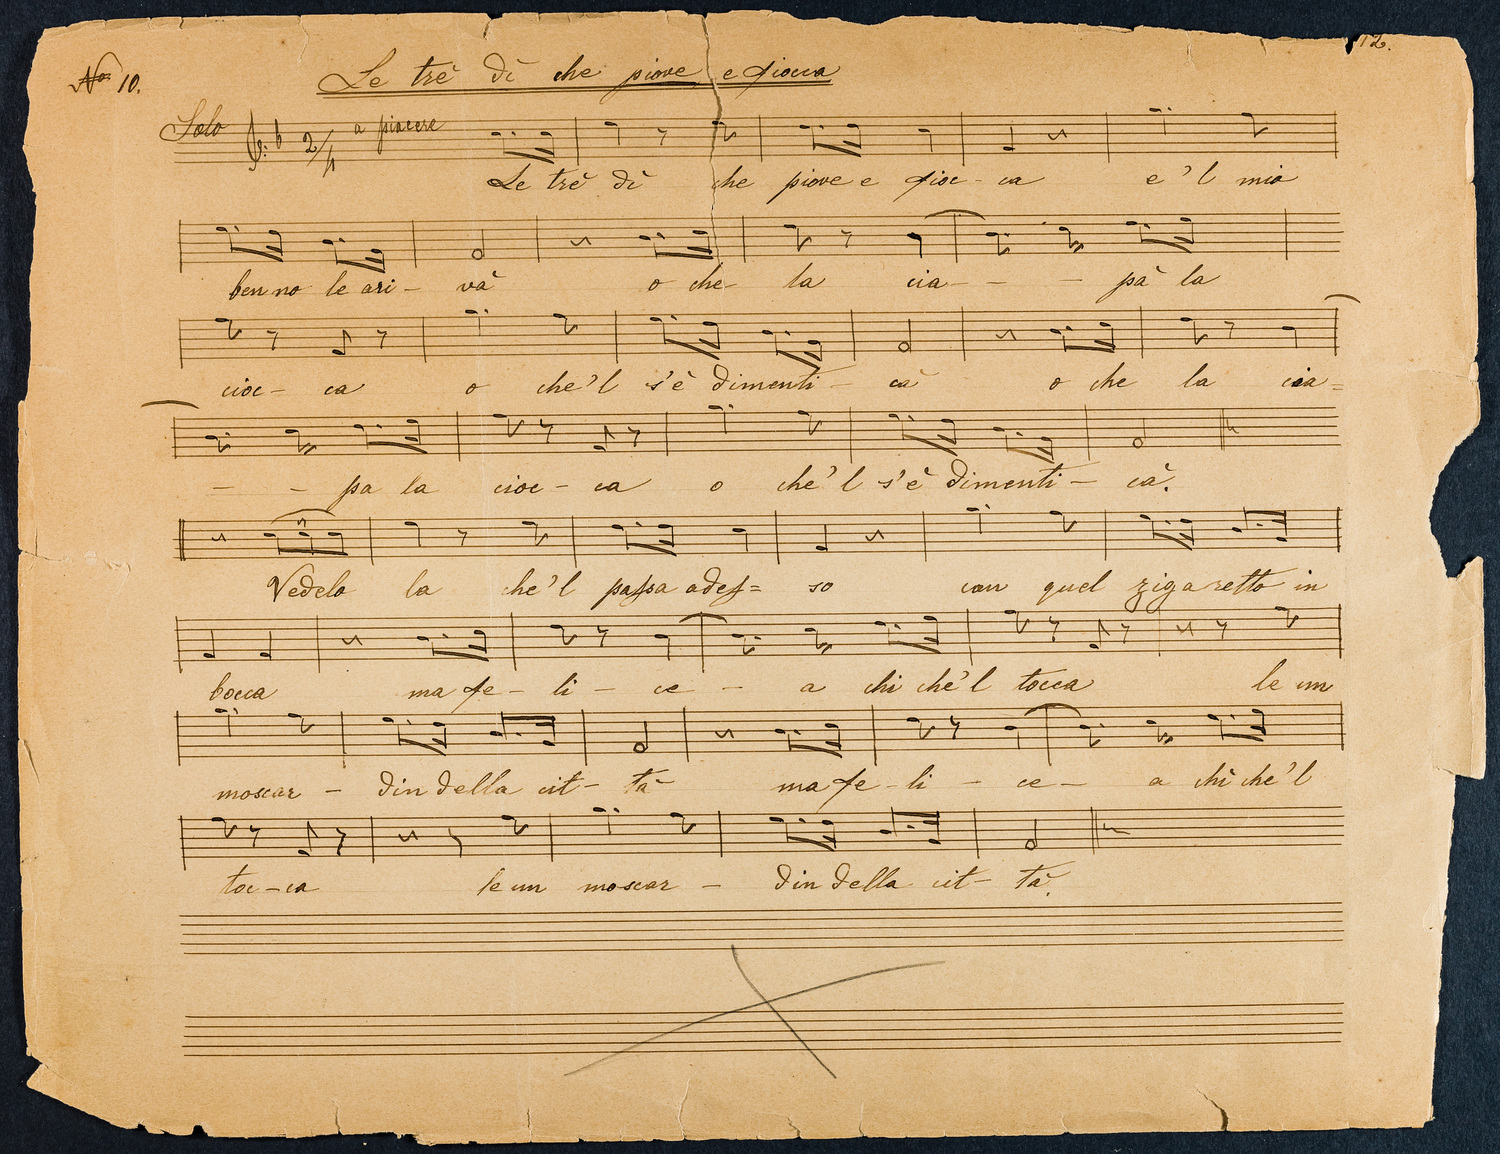 No 10.
12.
Le trè dì che piove e fiocca
Solo 2/4 a piacere
Le trè dì che piove e fioc - ca e'l mio
ben no le ari - và o che - la cia - - - pà la
cioc - ca o che'l s'è dimenti - cà o che la cia =
- - pa la cioc - ca o che'l s'è dimenti - cà.
3
Vedelo la che'l passa adess = so con quel zigaretto in
bocca ma fe - li - ce - a chi che'l tocca le un
moscar - din della cit - tà ma fe - li - ce - a chi che'l
toc - ca le un moscar - din della cit - tà.